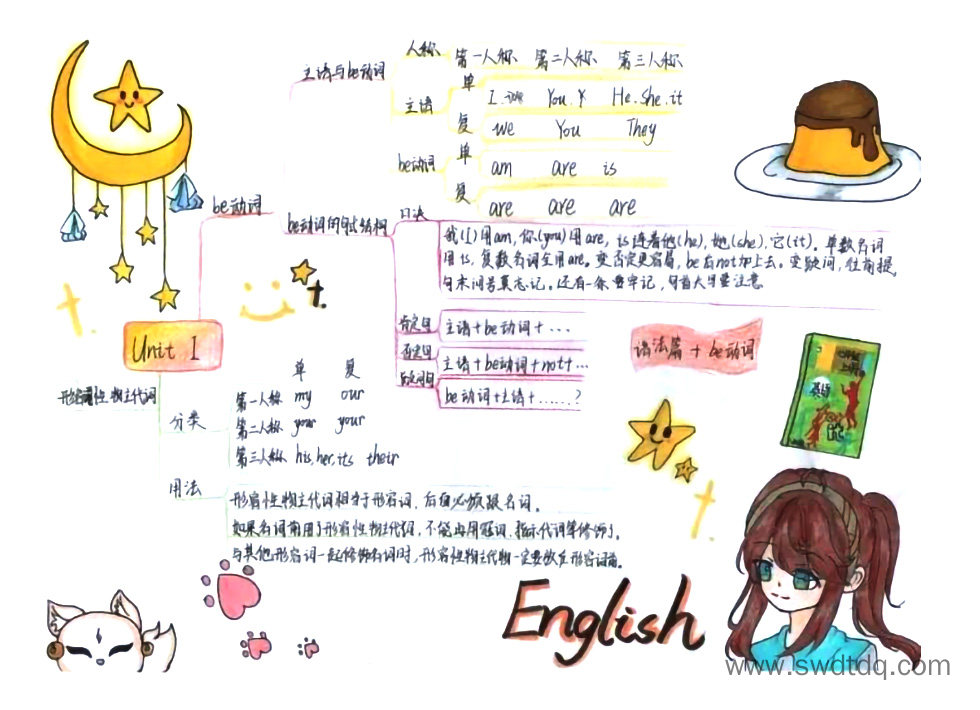 人称 第一人称 第二人称 第三人称
主语与be动词
主语
单 I You He.she.it
复 we You They
be动词
单 am are is
复 are are are
be动词
be动词的句式结构
口诀
我(I)用am,你(you)用are,is连着他(he),她(she),它(it)。单数名词
用is,复数名词全用are。变否定更容易,be后not加上去。变疑问,往前提,
句末问号莫忘记。还有一条要牢记,句首大写要注意
肯定句 主语+be动词+...
否定句 主语+be动词+not+...
疑问句 be动词+主语+......?
Unit 1
语法篇+be动词
形容词性物主代词
分类
单 复
第一人称 my our
第二人称 your your
第三人称 his,her,its their
用法
形容词性物主代词相当于形容词,后面必须跟名词。
如果名词前用了形容词性物主代词,不能再用冠词、指示代词等修饰了。
与其他形容词一起修饰名词时,形容词性物主代词一定要放在形容词前。
英语
English
www.swdtdq.com